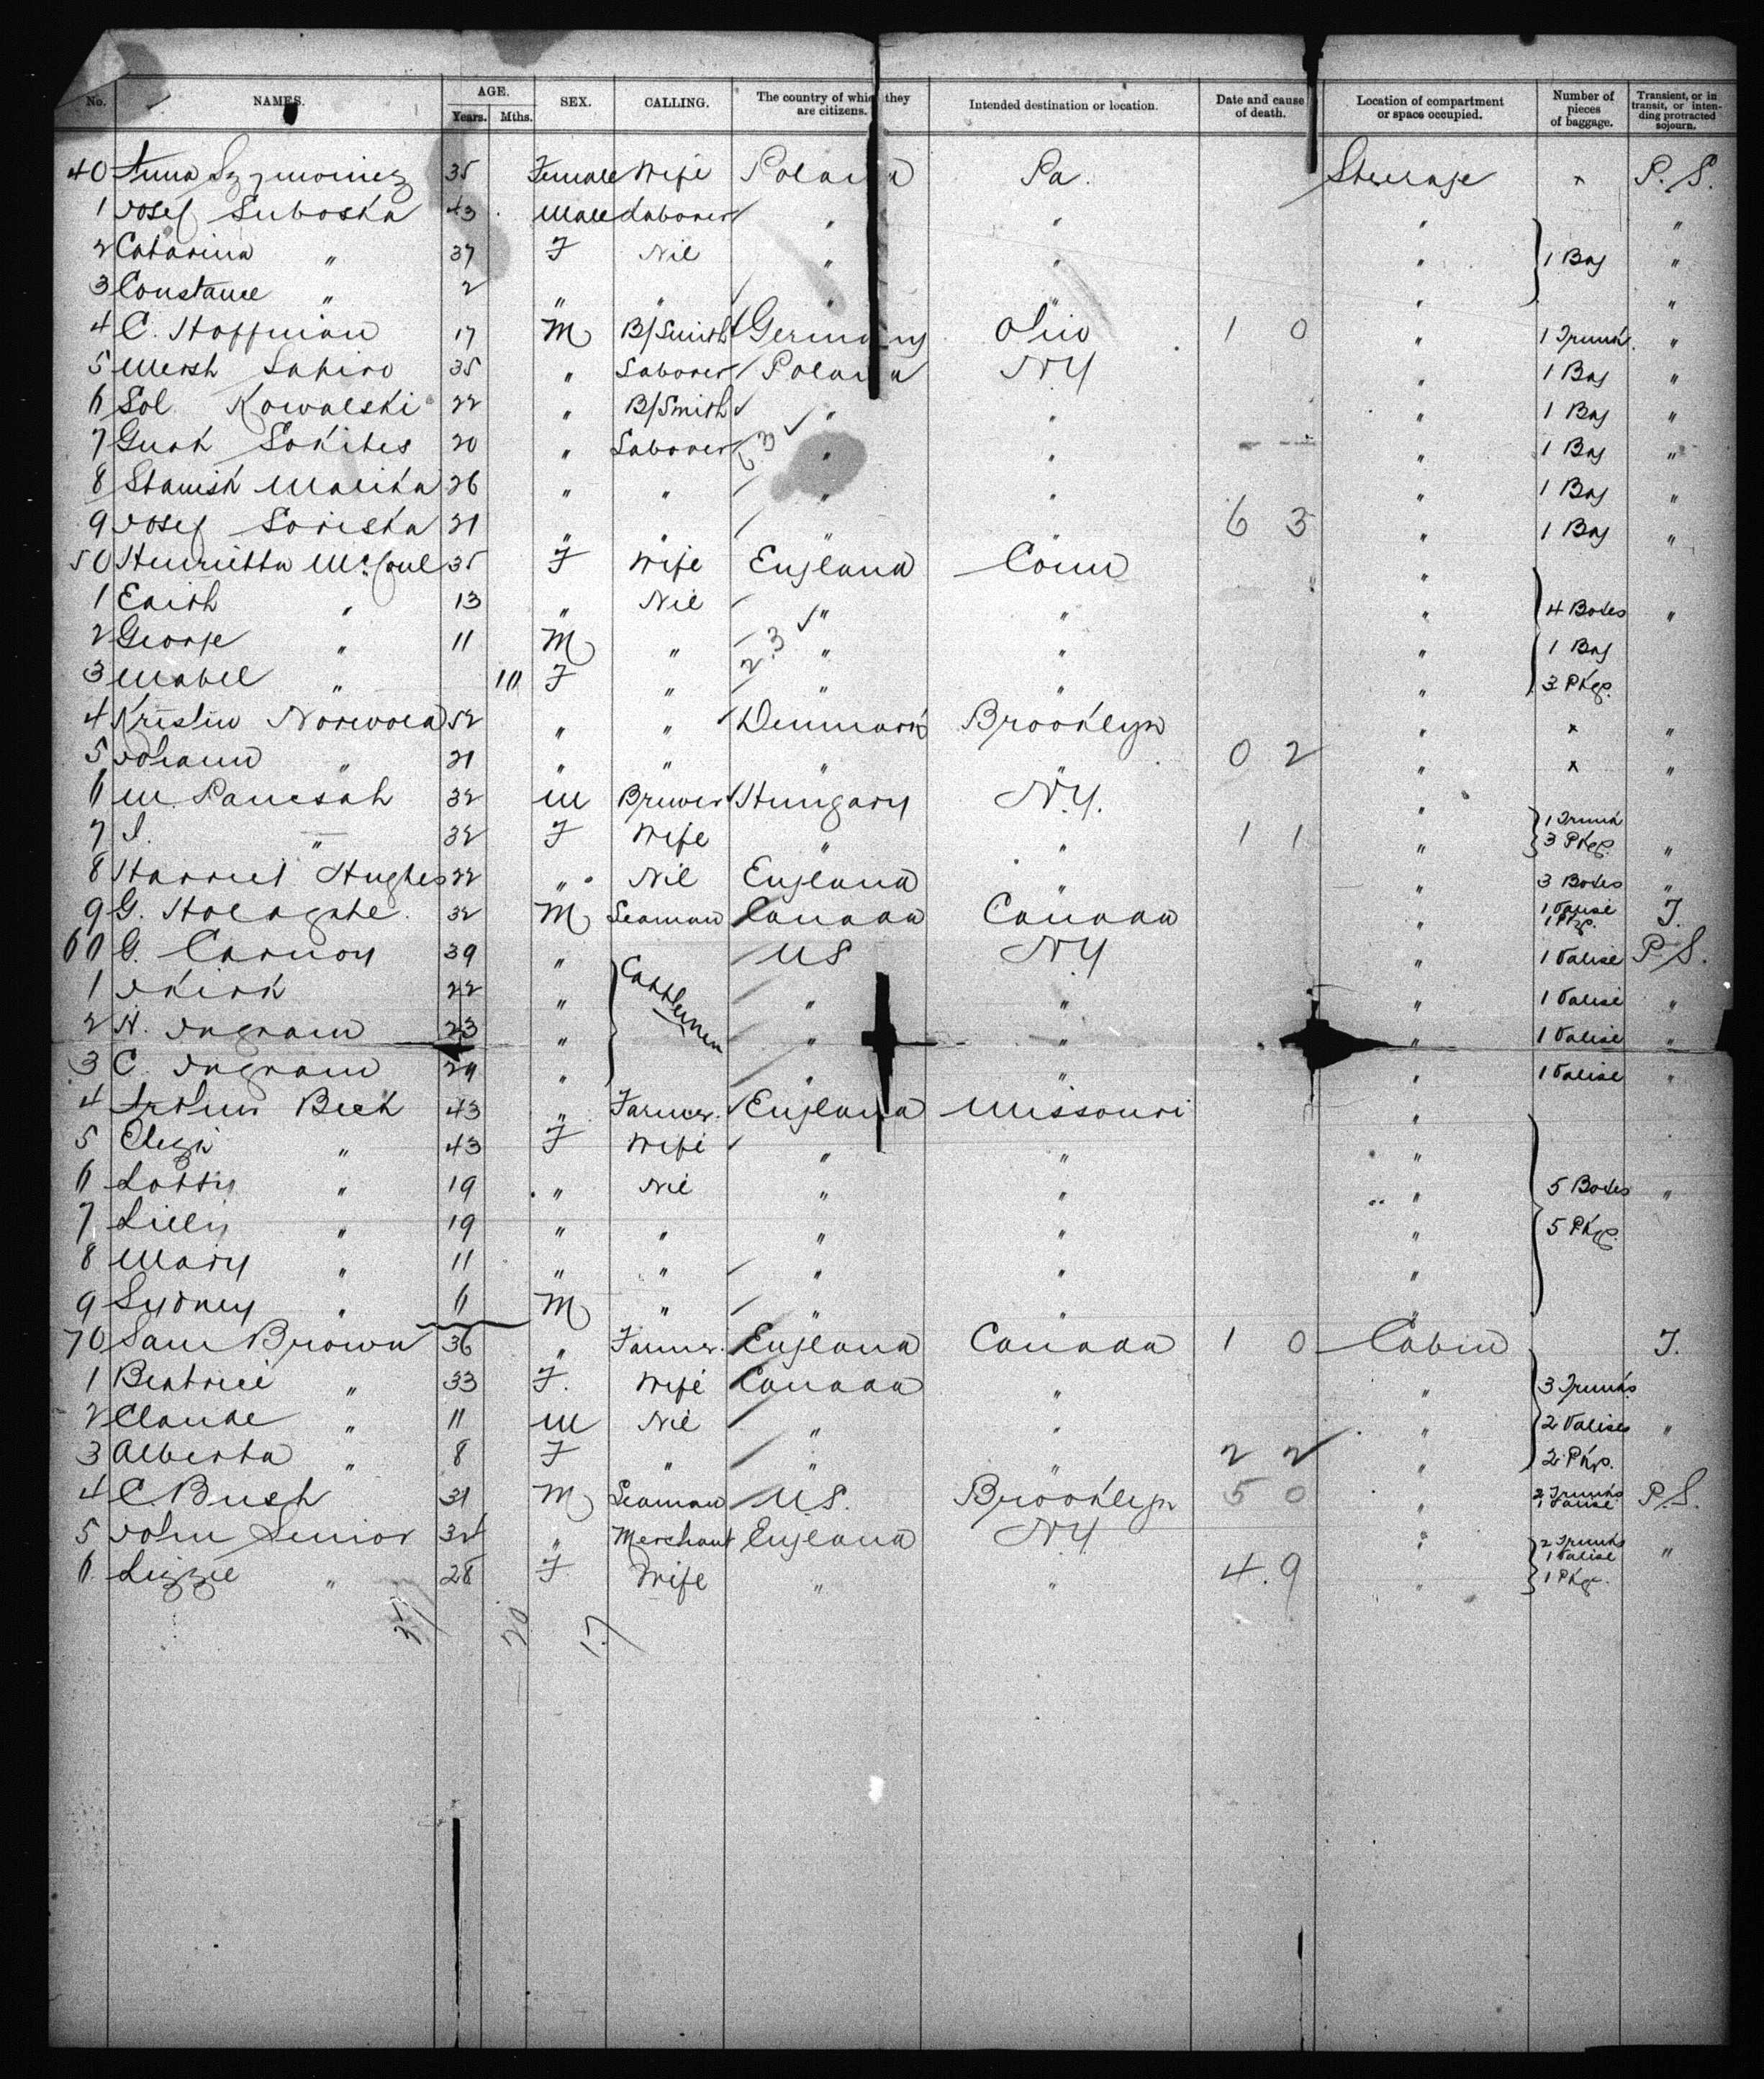 No. NAMES. AGE. Years. Mths. SEX. CALLING. The country of which they are citizens. Intended destination or location. Date and cause of death. Location of compartment or space occupied. Number of pieces of baggage. Transient, or in transit, or intending protracted sojourn.
40 Anna 35 Female Wife Poland Pa. Steerage x P. S.
1 Josef Suboska 43 Male Laborer " " " "
2 Catarina " 37 F Nil " " " 1 Bag "
3 Constance " 2 " " " " " "
4 C. Hoffman 17 M B/Smith Germany Ohio 1 0 " 1 Trunk "
5 Mersh Sapiro 35 " Laborer Poland NY " 1 Bag "
6 Sol Kowalski 22 " B/Smith " " " 1 Bag "
7 20 " Laborer 6.3 " " " 1 Bag "
8 Stanish Malika 26 " " " " " 1 Bag "
9 Josef Soriska 21 " " " " 6 3 " 1 Bag "
50 Henrietta 35 F Wife England Conn "
1 Edith " 13 " Nil " " " 4 Boxes "
2 George " 11 M " 2.3 " " " 1 Bag
3 Mabel " 10 F " " " " 3 Pkgs.
4 Kristin 52 " " Denmark Brooklyn " x "
5 Johann " 21 " " " " 0 2 " x "
6 M. 32 M Brewer Hungary N.Y. "
7 " 32 F Wife " " 1 1 " 1 Trunk 3 Pkgs. "
8 Harriet Hughes 22 " Nil England " " 3 Boxes "
9 G. Holdgate 32 M Seaman Canada Canada " 1 Valise 1 Pkg. T.
60 G. Carnoy 39 " Cattlemen US NY " 1 Valise P S.
1 J Kirk 22 " " " " 1 Valise "
2 H. Ingram 23 " " " " 1 Valise "
3 C. Ingram " " " " 1 Valise "
4 Arthur Beck 43 " Farmer England Missouri "
5 Eliza " 43 F Wife " " "
6 Lotty " 19 " Nil " " " 5 Boxes "
7 Lilly " 19 " " " " " 5 Pkgs.
8 Mary " 11 " " " " "
9 Sydney " 6 M " " " "
70 Sam Brown 36 " Farmer England Canada 1 0 Cabin T.
1 Beatrice " 33 F. Wife Canada " " 3 Trunks
2 Claude " 11 M Nil " " " 2 Valises "
3 Alberta " 8 F " " " 2 2 " 2 Pkgs.
4 C. Bush 31 M Seaman US. Brooklyn 5 0 " 2 Trunks 1 Valise P.S.
5 John Senior 34 " Merchant England NY " 2 Trunks 1 Valise "
6 Lizzie " 28 F Wife " " 4.9 " 1 Pkge.
20 17